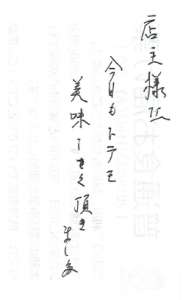 店主様
今日もトテモ
美味しく頂き
ました